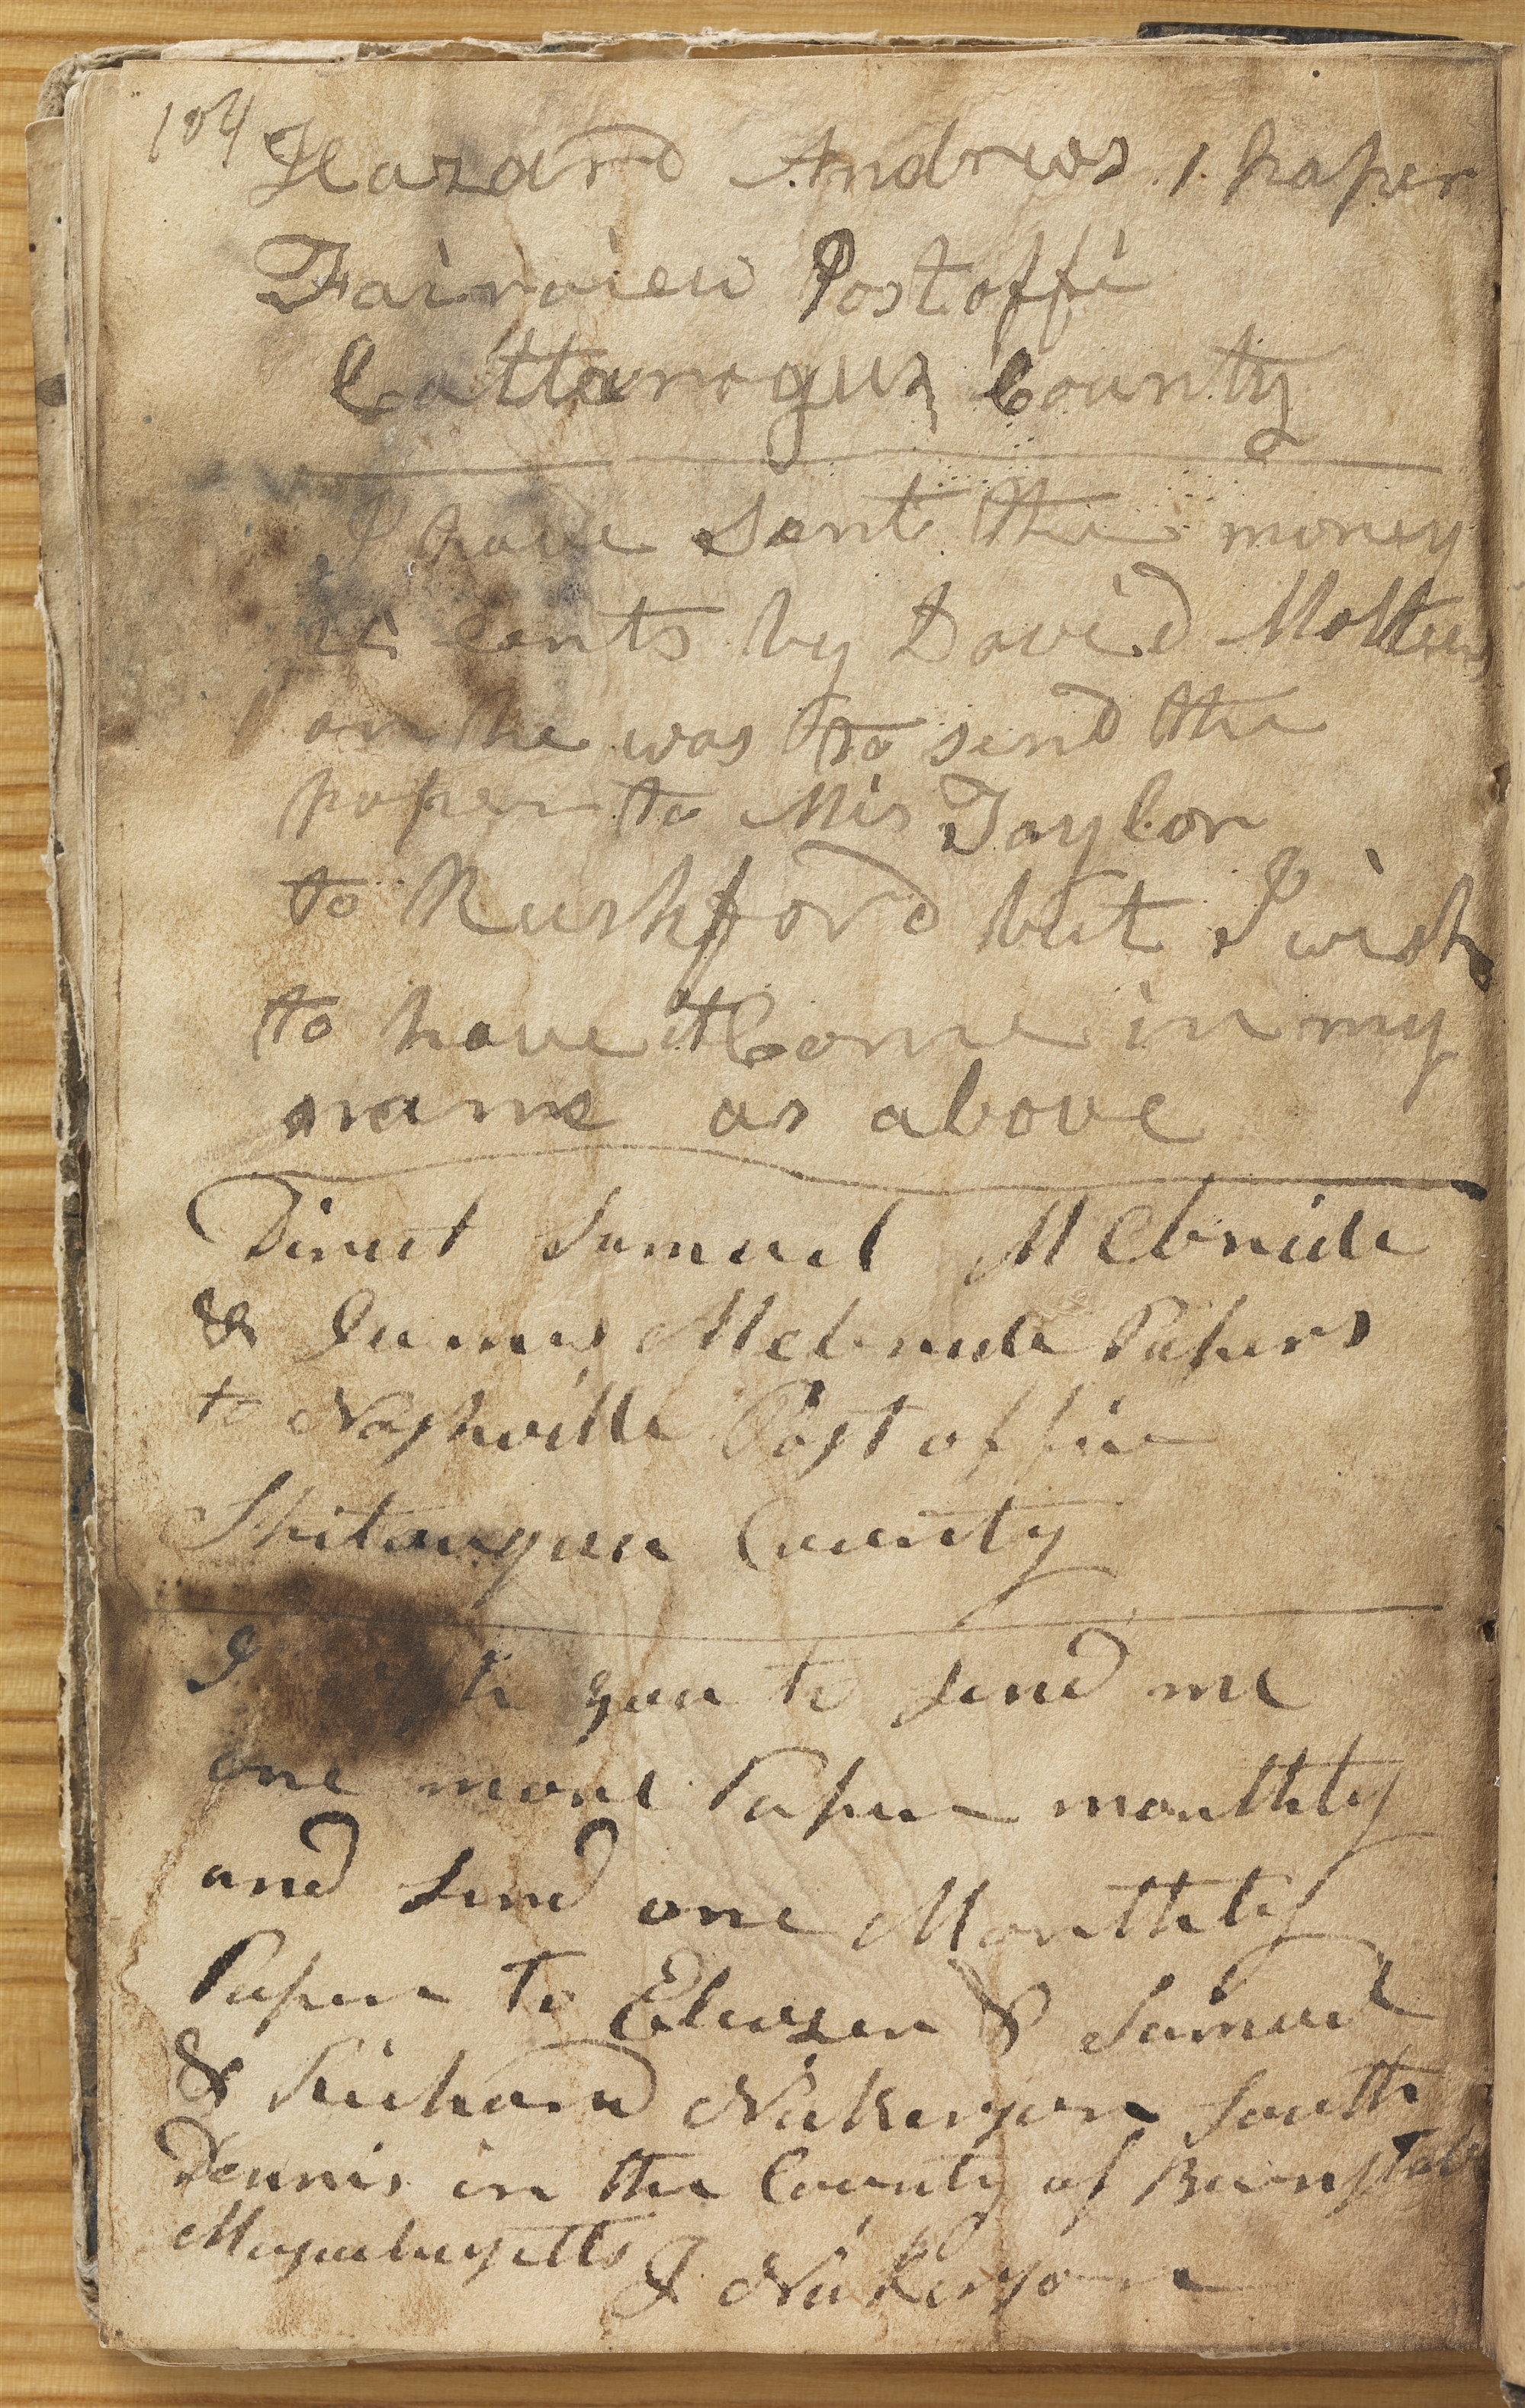 104
Hazard Andrews 1 paper
Fairview Postoffi
Cattarogus County
I have sent the money
cents by David Mattews
on he was to send the
paper to Mis Taylor
to Rushford but I wish
to have it Come in my
name as above
Direct Samuel Mcbride
& James Mcbride Papers
to Nashville Post office
Shitauquea County
I you to send me
one more Paper monthly
and send one Monthly
Paper to Eleazer & Samuel
& Richard Nickerson South
Dennis in the County of Barnstabl
Massachusetts J Nickerson